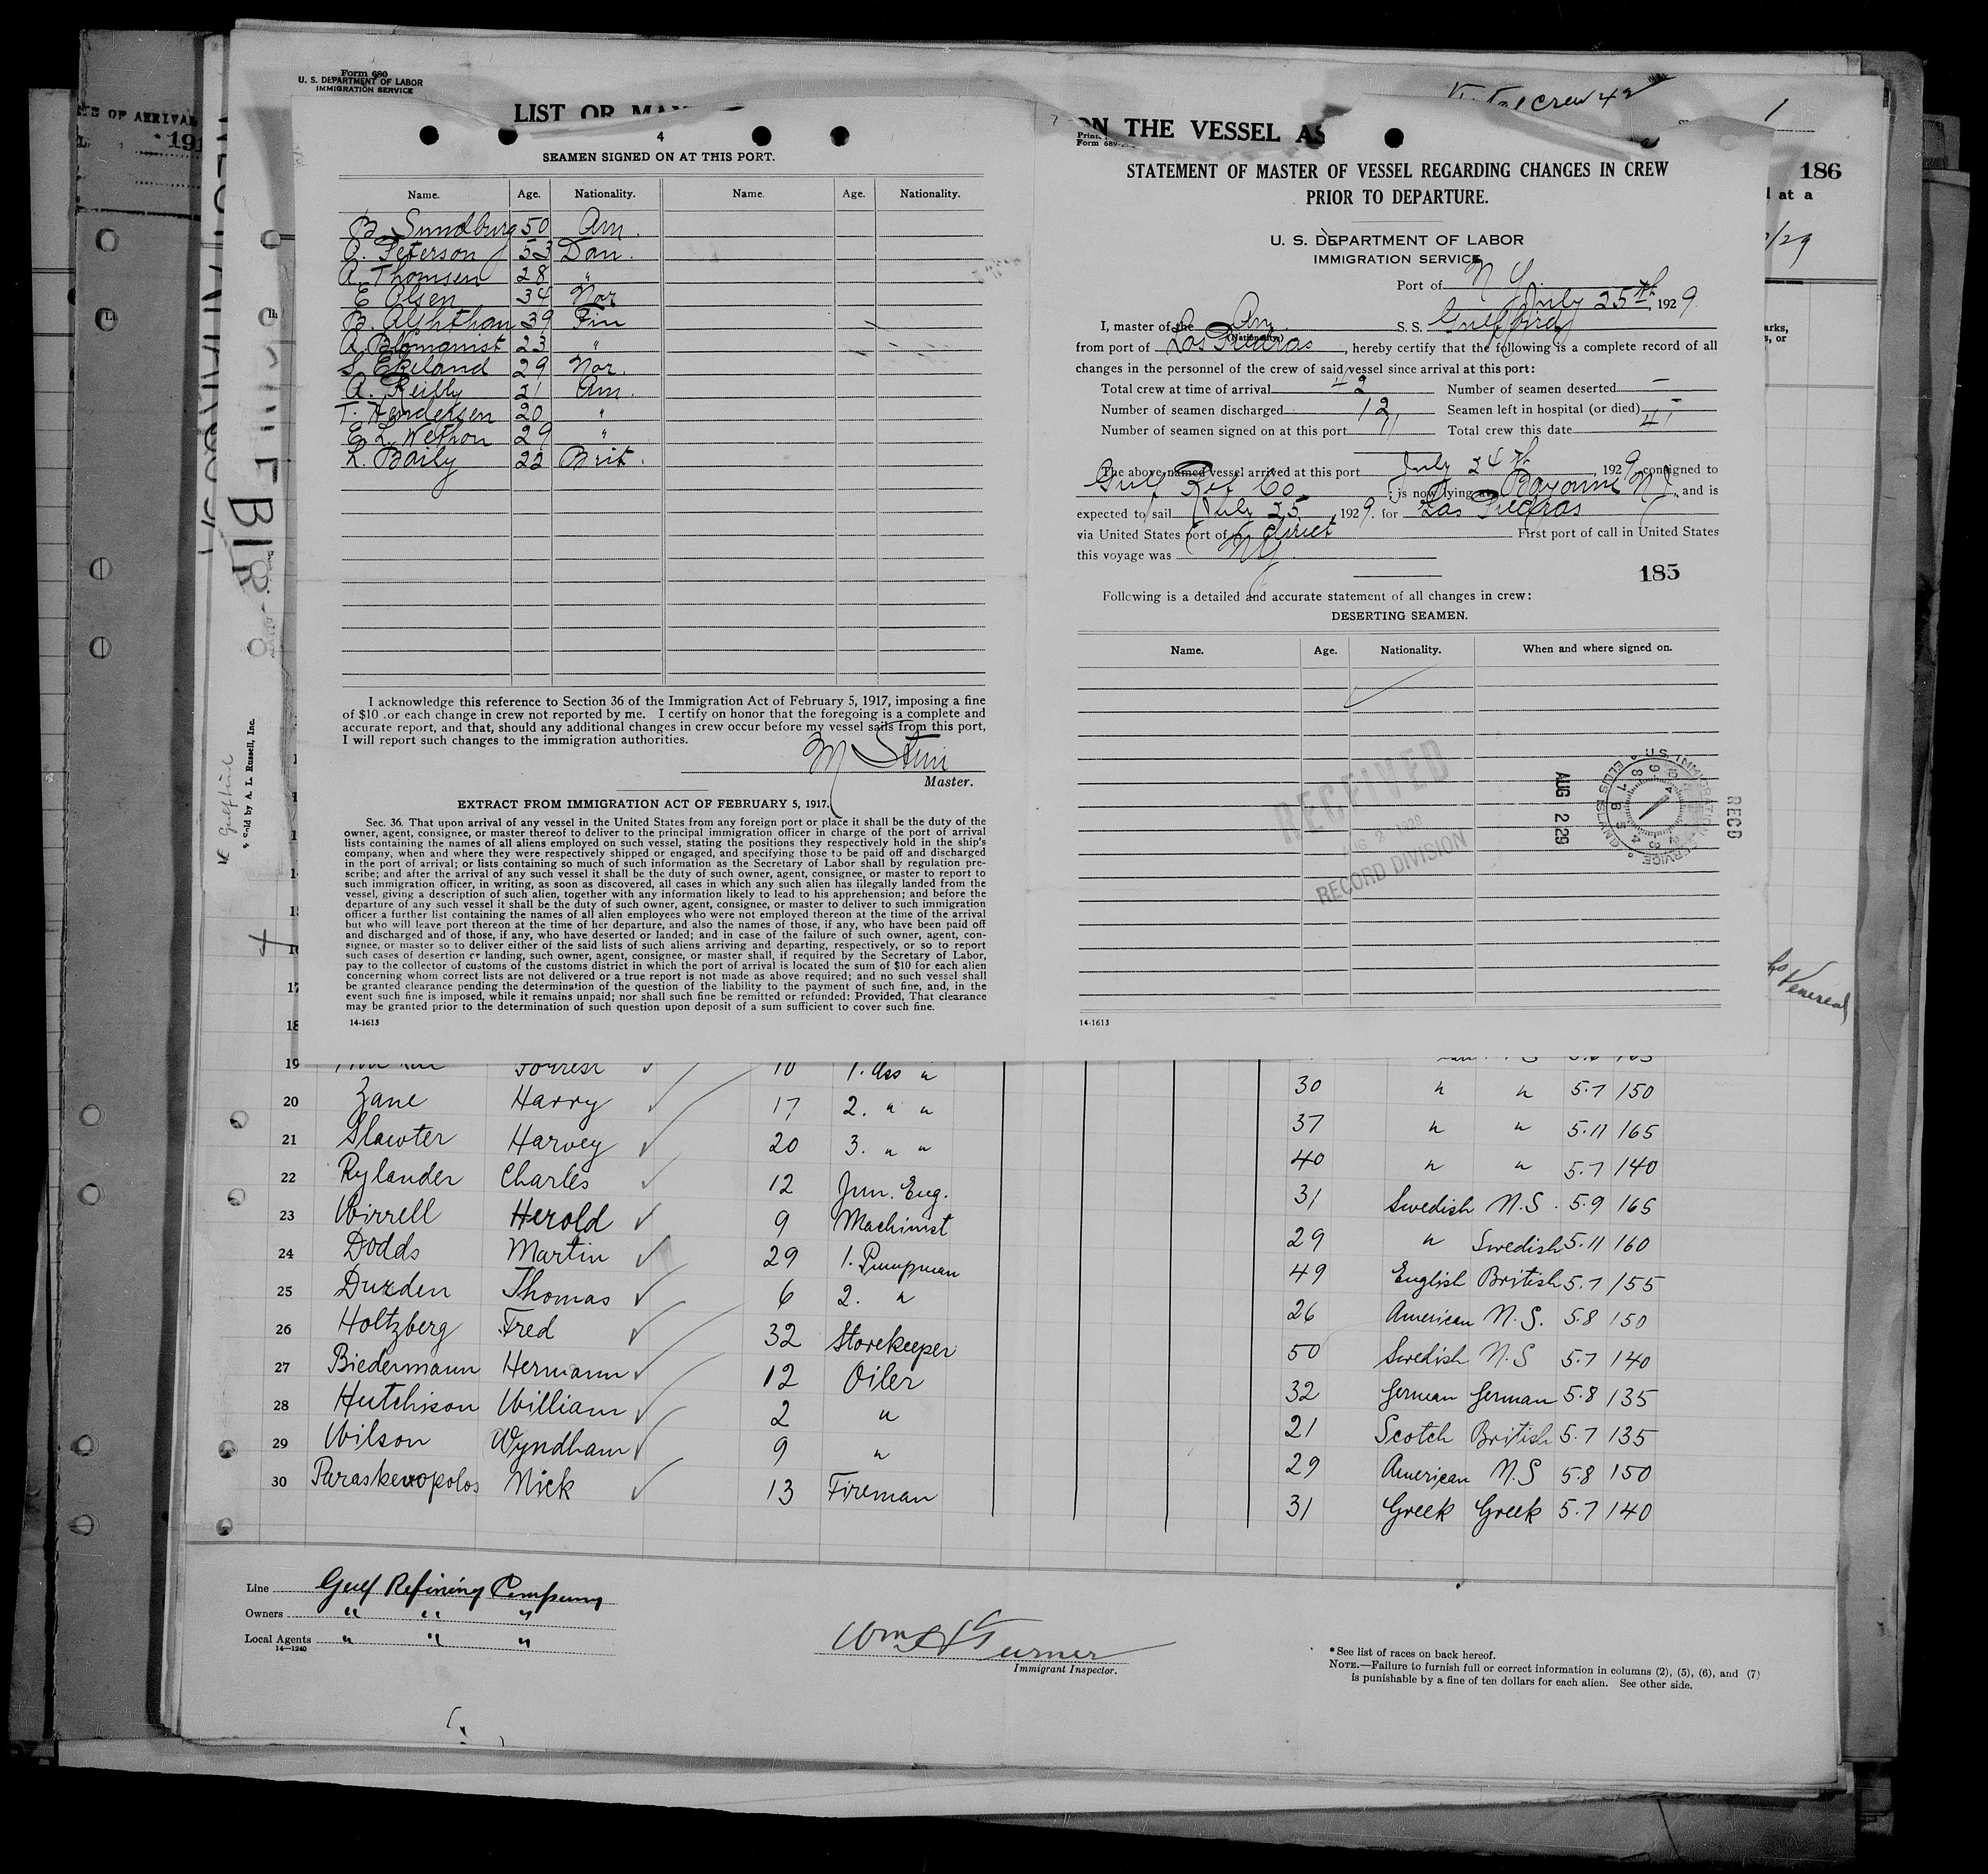 Form 680
U. S. DEPARTMENT OF LABOR
IMMIGRATION SERVICE
LIST OR
ON THE VESSEL AS
Total crew 42
1
186
4
SEAMEN SIGNED ON AT THIS PORT.
Name. Age. Nationality. Name. Age. Nationality.
B. Sundburg 50 Am.
O. Peterson 53 Dan.
A. Thomsen 28 "
E Olsen 34 Nor
B. Alshthan 39 Fin
A. Blomqmist 23 "
S. Ekeland 29 Nor.
A. Reilly 21 Am.
T. Hendersen 20 "
E. L. Wethon 29 "
L. Baily 22 Brit.
I acknowledge this reference to Section 36 of the Immigration Act of February 5, 1917, imposing a fine
of $10 .or each change in crew not reported by me. I certify on honor that the foregoing is a complete and
accurate report, and that, should any additional changes in crew occur before my vessel sails from this port,
I will report such changes to the immigration authorities.
M Stein
Master.
EXTRACT FROM IMMIGRATION ACT OF FEBRUARY 5, 1917.
Sec. 36. That upon arrival of any vessel in the United States from any foreign port or place it shall be the duty of the
owner, agent, consignee, or master thereof to deliver to the principal immigration officer in charge of the port of arrival
lists containing the names of all aliens employed on such vessel, stating the positions they respectively hold in the ship's
company, when and where they were respectively shipped or engaged, and specifying those to be paid off and discharged
in the port of arrival; or lists containing so much of such information as the Secretary of Labor shall by regulation pre-
scribe; and after the arrival of any such vessel it shall be the duty of such owner, agent, consignee, or master to report to
such immigration officer, in writing, as soon as discovered, all cases in which any such alien has illegally landed from the
vessel, giving a description of such alien, together with any information likely to lead to his apprehension; and before the
departure of any such vessel it shall be the duty of such owner, agent, consignee, or master to deliver to such immigration
officer a further list containing the names of all alien employees who were not employed thereon at the time of the arrival
but who will leave port thereon at the time of her departure, and also the names of those, if any, who have been paid off
and discharged and of those, if any, who have deserted or landed; and in case of the failure of such owner, agent, con-
signee, or master so to deliver either of the said lists of such aliens arriving and departing, respectively, or so to report
such cases of desertion or landing, such owner, agent, consignee, or master shall, if required by the Secretary of Labor,
pay to the collector of customs of the customs district in which the port of arrival is located the sum of $10 for each alien
concerning whom correct lists are not delivered or a true report is not made as above required; and no such vessel shall
be granted clearance pending the determination of the question of the liability to the payment of such fine, and, in the
event such fine is imposed, while it remains unpaid; nor shall such fine be remitted or refunded: Provided, That clearance
may be granted prior to the determination of such question upon deposit of a sum sufficient to cover such fine.
14-1613
STATEMENT OF MASTER OF VESSEL REGARDING CHANGES IN CREW
PRIOR TO DEPARTURE.
U. S. DEPARTMENT OF LABOR
IMMIGRATION SERVICE
Port of N Y.
July 25th, 1929
I, master of the Am. S. S. Gulfbird
(Nationality)
from port of Las Piedras, hereby certify that the following is a complete record of all
changes in the personnel of the crew of said vessel since arrival at this port:
Total crew at time of arrival 42 Number of seamen deserted —
Number of seamen discharged 12 Seamen left in hospital (or died) —
Number of seamen signed on at this port 11 Total crew this date 41
The above-named vessel arrived at this port July 24th, 1929, consigned to
Gulf Ref Co; is now lying at Bayonne N J., and is
expected to sail July 25, 1929. for Las Piedras
via United States port of direct First port of call in United States
this voyage was NY.
185
Following is a detailed and accurate statement of all changes in crew:
DESERTING SEAMEN.
Name. Age. Nationality. When and where signed on.
RECEIVED
AUG 2 - 1929
RECORD DIVISION
AUG 2 29
U.S. IMMIGRATION SERVICE ELLIS ISLAND
RECD
14-1613
Venereal
Sold by A. L. Russell, Inc.
19 Forrest 10 1. Ass "
20 Zane Harry 17 2. " " 30 " " 5.7 150
21 Slawter Harvey 20 3. " " 37 " " 5.11 165
22 Rylander Charles 12 Jun. Eng. 40 " " 5.7 140
23 Wirrell Herold 9 Machinist 31 Swedish N.S. 5.9 165
24 Dodds Martin 29 1. Pumpman 29 " Swedish 5.11 160
25 Durden Thomas 6 2. " 49 English British 5.7 155
26 Holtzberg Fred 32 Storekeeper 26 American N.S. 5.8 150
27 Biedermann Hermann 12 Oiler 50 Swedish N.S 5.7 140
28 Hutchison William 2 " 32 German German 5.8 135
29 Wilson Wyndham 9 " 21 Scotch British 5.7 135
30 Paraskevopolos Nick 13 Fireman 29 American N.S 5.8 150
31 Greek Greek 5.7 140
Line Gulf Refining Company
Owners " " "
Local Agents " " "
14—1240
Wm Turner
Immigrant Inspector.
* See list of races on back hereof.
NOTE.—Failure to furnish full or correct information in columns (2), (5), (6), and (7)
is punishable by a fine of ten dollars for each alien. See other side.